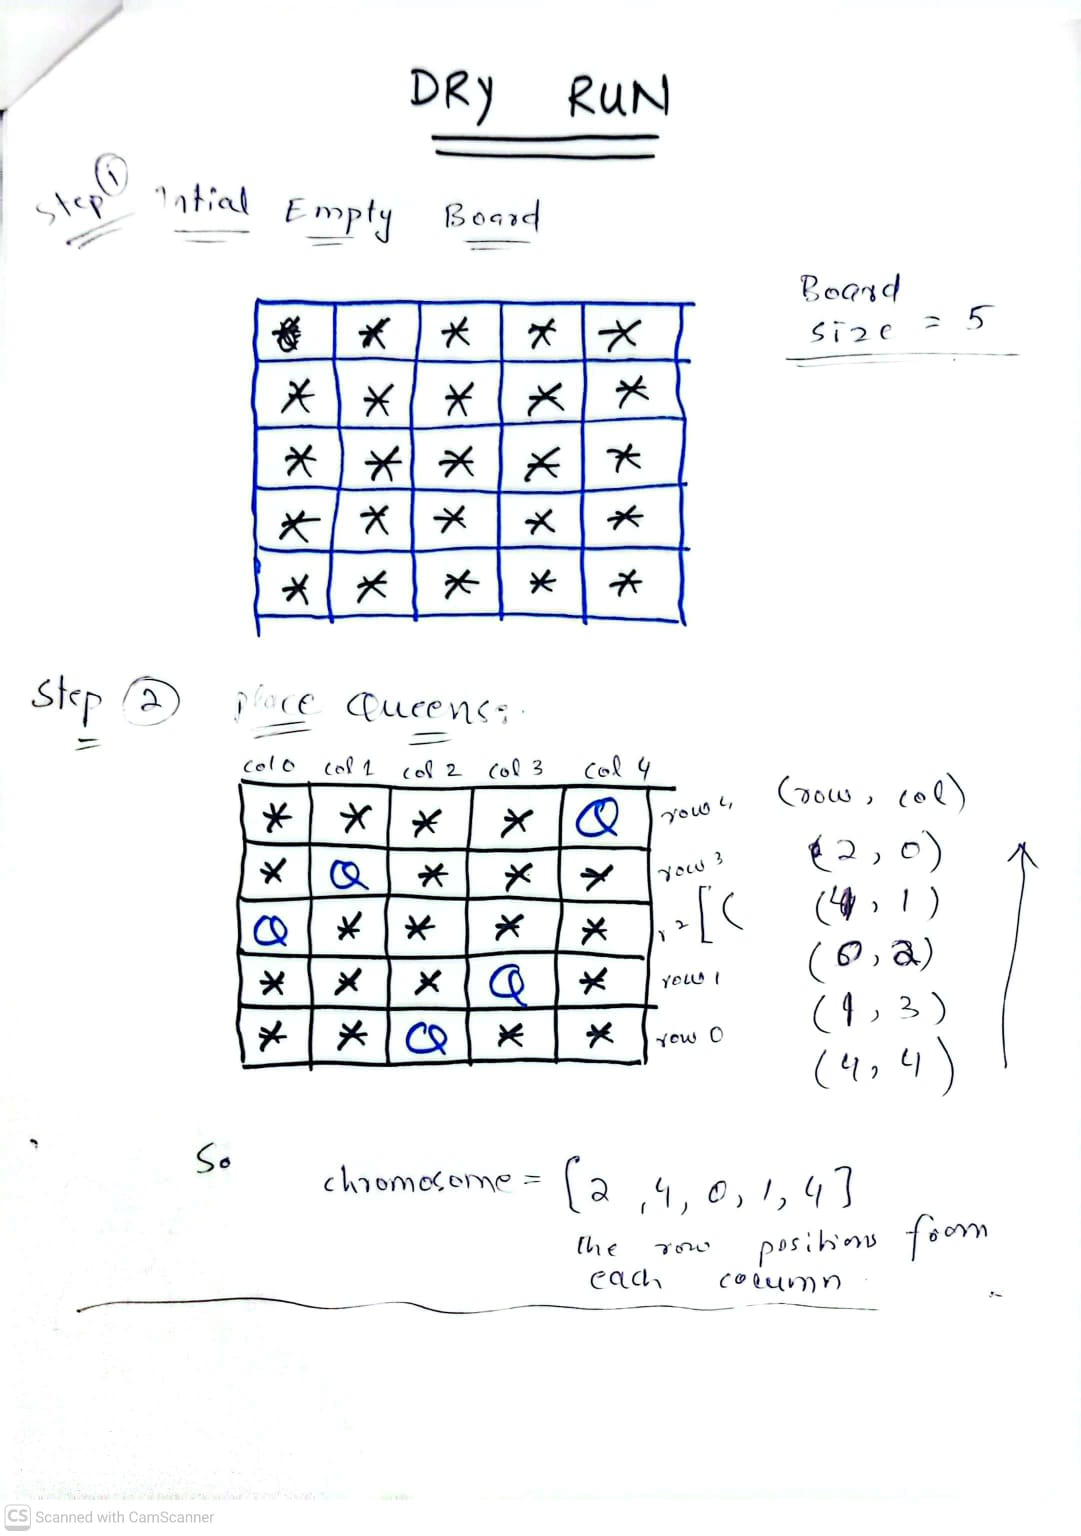 DRY RUN
Step ① Intial Empty Board
Board
size = 5
* * * * *
* * * * *
* * * * *
* * * * *
* * * * *
Step ② place Queens:
col 0 col 1 col 2 col 3 col 4
(row, col)
* * * * Q row 4
* Q * * * row 3
(2, 0)
(4, 1)
Q * * * * r 2 [(
(0, 2)
* * * Q * row 1
(1, 3)
* * Q * * row 0
(4, 4)
So
chromosome = [2, 4, 0, 1, 4]
the row positions from
each column
CS Scanned with CamScanner